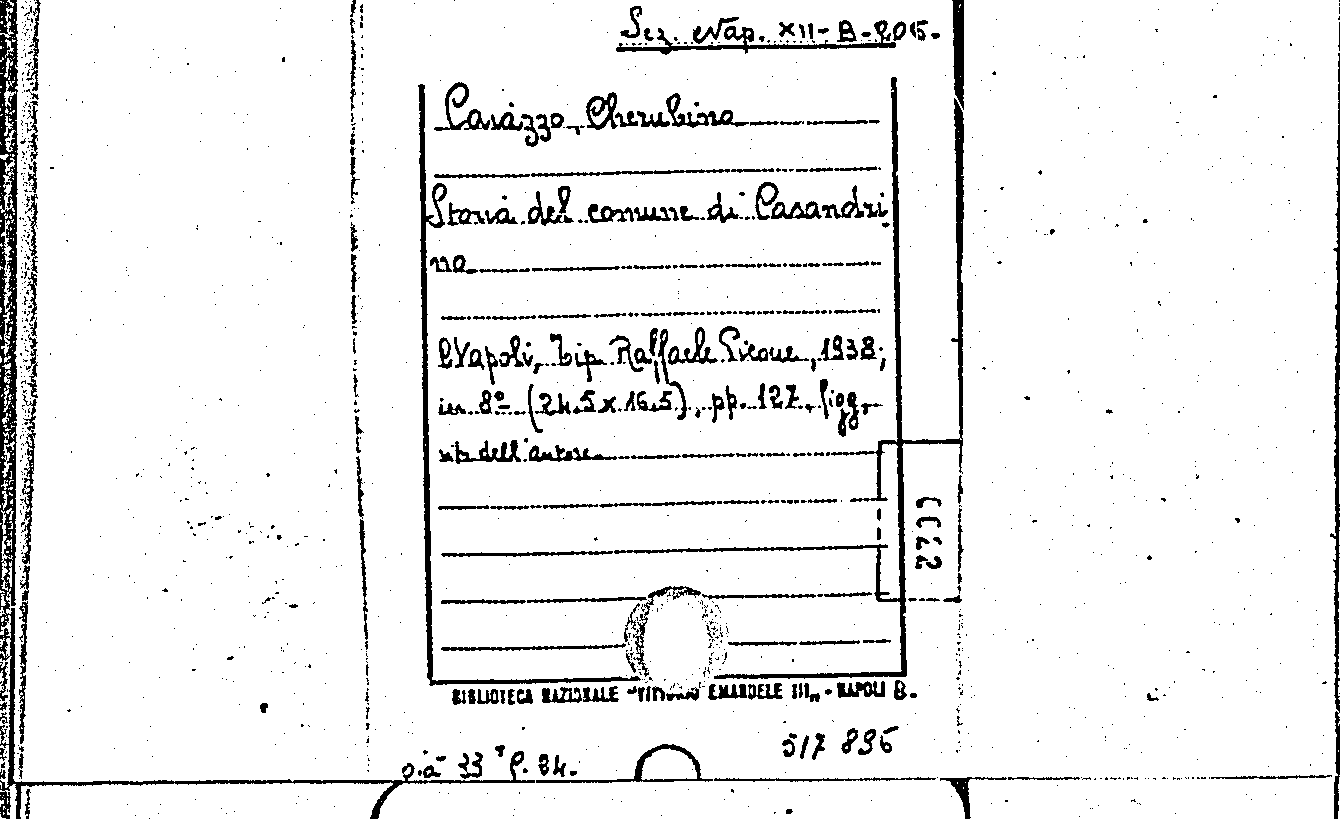 Sez. Nap. XII-B-205.
Casazzo, Cherubino
Storia del comune di Casandri
no
Napoli, Tip. Raffaele Picone, 1938;
in 8º (24.5x16.5), pp. 127, figg.
dell'autore
BIBLIOTECA NAZIONALE "VITTORIO EMANUELE III" - NAPOLI B.
517 896